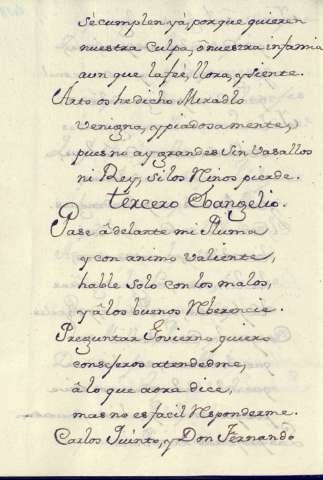 se cumplen yà, porque quieren
nuestra Culpa, ô nuestra infamia
aun que la feé, llora, y siente.
Arto os he dicho Miradlo
venigna, y piadosamente,
pues no ay grandes Sin Vasallos
ni Rey, si los Ninos pierde.
tercero Evangelio.
Pase âdelante mi Pluma
y con animo valiente,
hable solo con los malos,
y âlos buenos Rberencie.
Preguntar Govierno quiero
consejeros atendedme,
âlo que aora dice,
mas no es facil Responderme.
Carlos Quinto, y Don Fernando